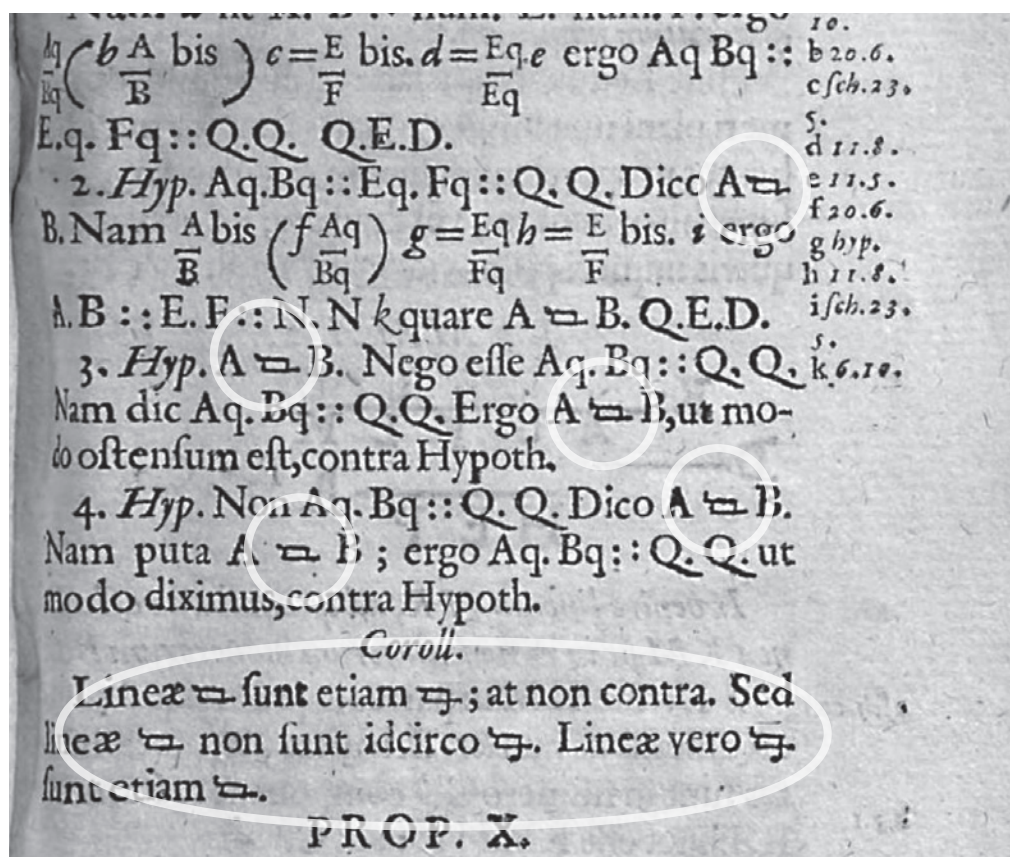 ergo
Aq/Bq ( b A/B bis ) c = E/F bis. d = Eq/Eq e ergo Aq Bq ::
E.q. Fq :: Q.Q. Q.E.D.
2. Hyp. Aq.Bq :: Eq. Fq :: Q. Q. Dico A
B. Nam A/B bis ( f Aq/Bq ) g = Eq/Fq h = E/F bis. i ergo
A. B :: E. F :: N. N k quare A B. Q.E.D.
3. Hyp. A B. Nego eſſe Aq. Bq :: Q. Q.
Nam dic Aq. Bq :: Q.Q. Ergo A B, ut mo-
do oſtenſum eſt, contra Hypoth.
4. Hyp. Non Aq. Bq :: Q. Q. Dico A B.
Nam puta A B ; ergo Aq. Bq :: Q. Q. ut
modo diximus, contra Hypoth.
Coroll.
Lineæ ſunt etiam ; at non contra. Sed
lineæ non ſunt idcirco . Lineæ vero
ſunt etiam .
PROP. X.
10.
b 20.6.
c ſch.23.
5.
d 11.8.
e 11.5.
f 20.6.
g hyp.
h 11.8.
i ſch.23.
5.
k 6.10.